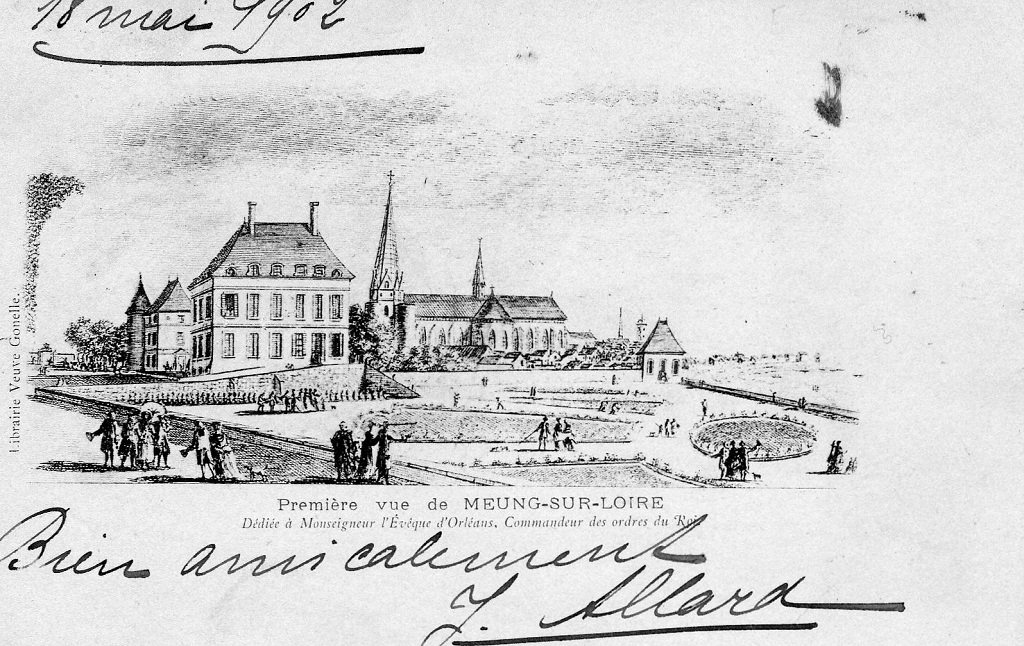 18 mai 1902
Librairie Veuve Gonelle.
Première vue de MEUNG-SUR-LOIRE
Dédiée à Monseigneur l'Évêque d'Orléans, Commandeur des ordres du Roi
Bien amicalement
J. Allard